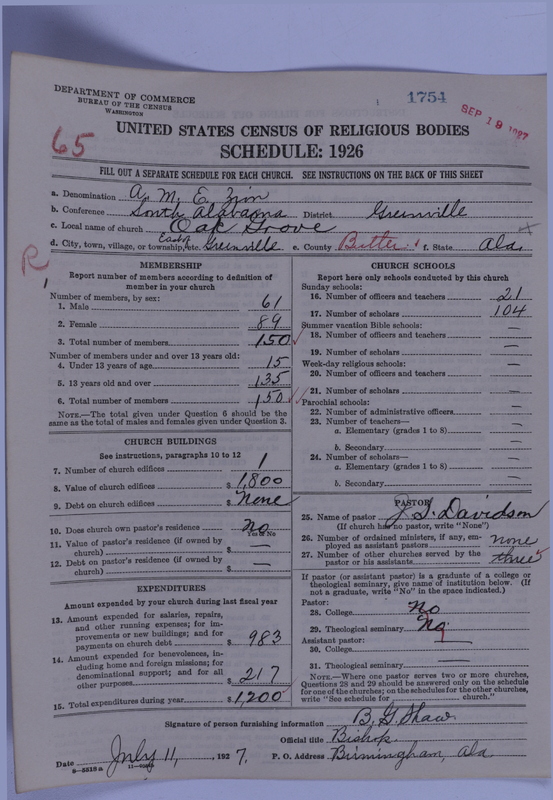 DEPARTMENT OF COMMERCE
BUREAU OF THE CENSUS
WASHINGTON
1754
SEP 19 1927
65
UNITED STATES CENSUS OF RELIGIOUS BODIES
SCHEDULE: 1926
FILL OUT A SEPARATE SCHEDULE FOR EACH CHURCH. SEE INSTRUCTIONS ON THE BACK OF THIS SHEET
a. Denomination A. M. E. Zion
b. Conference South Alabama District Greenville
c. Local name of church Oak Grove
d. City, town, village, or township, etc. East of Greenville e. County Butler f. State Ala.
R
MEMBERSHIP
Report number of members according to definition of
member in your church
Number of members, by sex:
1. Male 61
2. Female 89
3. Total number of members 150
Number of members under and over 13 years old:
4. Under 13 years of age 15
5. 13 years old and over 135
6. Total number of members 150
NOTE.—The total given under Question 6 should be the
same as the total of males and females given under Question 3.
CHURCH BUILDINGS
See instructions, paragraphs 10 to 12
7. Number of church edifices 1
8. Value of church edifices $ 1,800
9. Debt on church edifices $ None
10. Does church own pastor's residence No
Yes or No
11. Value of pastor's residence (if owned by
church) $ —
12. Debt on pastor's residence (if owned by
church) $ —
EXPENDITURES
Amount expended by your church during last fiscal year
13. Amount expended for salaries, repairs,
and other running expenses; for im-
provements or new buildings; and for
payments on church debt $ 983
14. Amount expended for benevolences, in-
cluding home and foreign missions; for
denominational support; and for all
other purposes $ 217
15. Total expenditures during year $ 1,200
CHURCH SCHOOLS
Report here only schools conducted by this church
Sunday schools:
16. Number of officers and teachers 21
17. Number of scholars 104
Summer vacation Bible schools:
18. Number of officers and teachers —
19. Number of scholars —
Week-day religious schools:
20. Number of officers and teachers —
21. Number of scholars —
Parochial schools:
22. Number of administrative officers —
23. Number of teachers—
a. Elementary (grades 1 to 8) —
b. Secondary —
24. Number of scholars—
a. Elementary (grades 1 to 8) —
b. Secondary —
PASTOR
25. Name of pastor J. S. Davidson
(If church has no pastor, write "None")
26. Number of ordained ministers, if any, em-
ployed as assistant pastors none
27. Number of other churches served by the
pastor or his assistants three
If pastor (or assistant pastor) is a graduate of a college or
theological seminary, give name of institution below. (If
not a graduate, write "No" in the space indicated.)
Pastor:
28. College No
29. Theological seminary No
Assistant pastor:
30. College —
31. Theological seminary —
NOTE.—Where one pastor serves two or more churches,
Questions 28 and 29 should be answered only on the schedule
for one of the churches; on the schedules for the other churches,
write "See schedule for church."
Signature of person furnishing information B. G. Shaw
Official title Bishop
Date July 11, , 1927. P. O. Address Birmingham, Ala
8—5518a